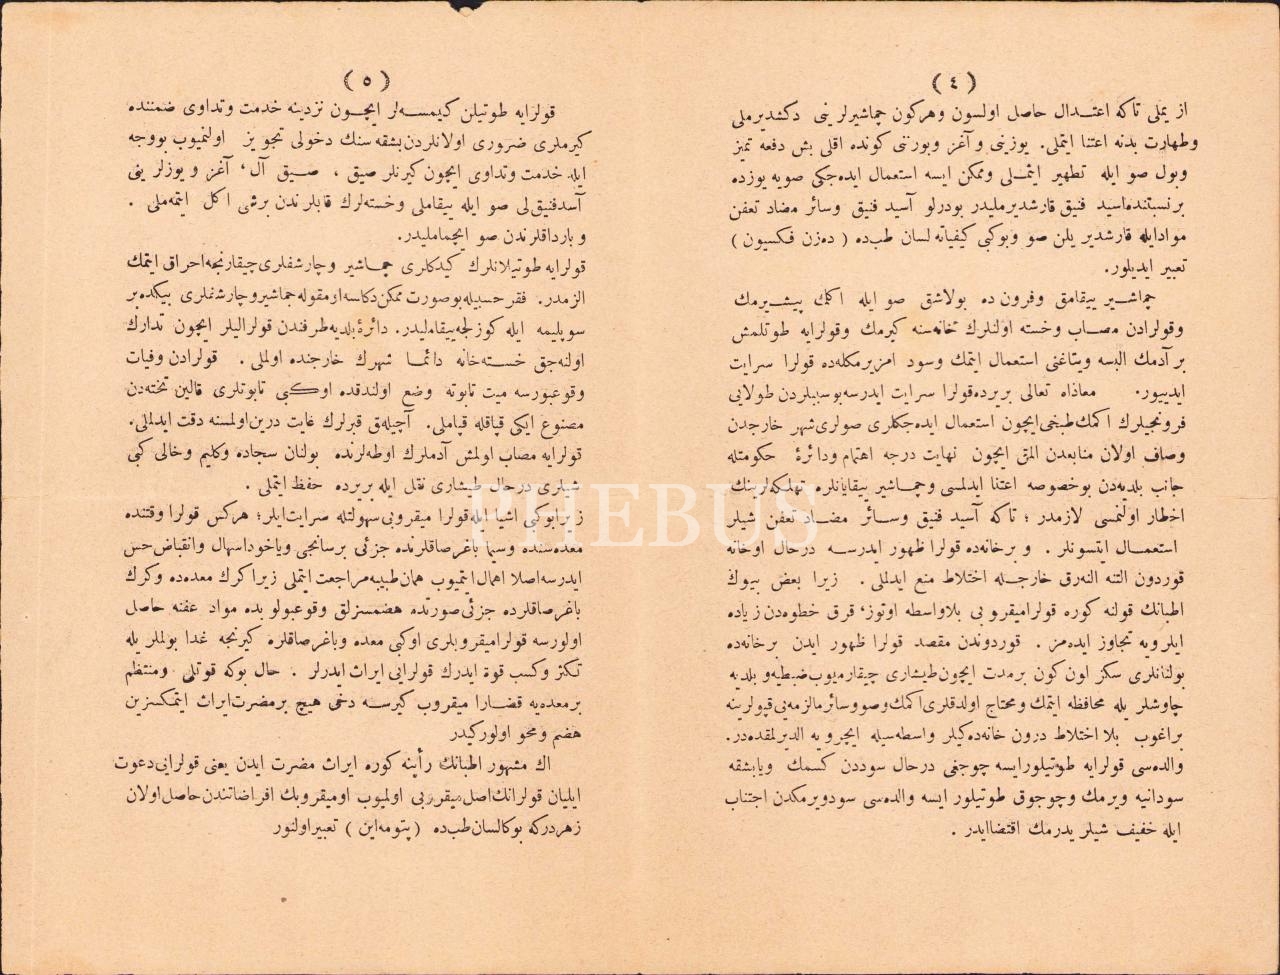 ( ٤ )
از يملى تاكه اعتدال حاصل اولسون وهركون چماشيرلرينى دكشديرملى
وطهارت بدنه اعتنا ايتملى. يوزينى و آغز وبورننى كونده اقلى بش دفعه تميز
وبول صو ايله تطهير ايتملى وممكن ايسه استعمال ايده‌جكى صويه يوزده
بر نسبتنده‌اسيد فنيق قارشديرمليدر بودرلو آسيد فنيق وسائر مضاد تعفن
موادايله قارشديريلن صو وبوكبى كيفياته لسان طبده ( ده‌زن فكسيون )
تعبير ايديلور.
چماشير ييقامق وفرون ده بولاشق صو ايله اكمك پيشيرمك
وقولرادن مصاب وخسته اولنلرك خانه‌سنه كيرمك وقولرايه طوتلمش
بر آدمك البسه ويتاغنى استعمال ايتمك وسود امزيرمكله‌ده قولرا سرايت
ايدييور. معاذاه تعالى بريرده‌قولرا سرايت ايدرسه‌بوسبيلردن طولايى
فرونجيلرك اكمك‌طبخى‌ايچون استعمال ايده‌جكلرى صولرى‌شهر خارجندن
وصاف اولان منابعدن المق ايچون نهايت درجه اهتمام ودائرهٔ حكومتله
جانب بلديه‌دن بوخصوصه اعتنا ايدلمسى وچماشير ييقايانلره تهلكه‌لرينك
اخطار اولنمسى لازمدر ؛ تاكه آسيد فنيق وسائر مضاد تعفن شيلر
استعمال ايتسونلر . و برخانه‌ده قولرا ظهور ايدرسه درحال اوخانه
قوردون التنه النه‌رق خارجله اختلاط منع ايدلملى . زيرا بعض بيوك
اطبانك قولنه كوره قولراميقروبى بلاواسطه اوتوز، قرق خطوه‌دن زياده
ايلرويه تجاوز ايده‌مز . قوردوندن مقصد قولرا ظهور ايدن برخانه‌ده
بولنانلرى سكز اون كون برمدت ايچون‌طيشارى چيقارميوب‌ضبطيه‌و بلديه
چاوشلر يله محافظه ايتمك ومحتاج اولدقلرى‌اكمك‌وصووسائرمالزمه‌يى‌قپولرينه
براغوب بلا اختلاط درون خانه‌ده‌كيلر واسطه‌سيله ايچرويه الديرلمقده‌در.
والده‌سى قولرايه طوتيلورايسه چوجغى درحال سوددن كسمك ويابشقه
سودانيه ويرمك وچوجوق طوتيلور ايسه والده‌سى سودويرمكدن اجتناب
ايله خفيف شيلر يدرمك اقتضاايدر .
( ٥ )
قولرايه طوتيلن كيمسه‌لر ايچون نزدينه خدمت وتداوى ضمننده
كيرملرى ضرورى اولانلردن‌بشقه‌سنك دخولى تجويز اولنميوب بووجه
ايله خدمت وتداوى ايچون كيرنلر صيق ، صيق آل ، آغز و يوزلرينى
آسدفنيق‌لى صو ايله ييقاملى وخسته‌لرك قابلرندن برشى اكل ايتمه‌ملى .
و بارداقلرندن صو ايچمامليدر.
قولرايه طوتيلانلرك كيدكلرى چماشير وچارشفلرى‌چيقارنجه‌احراق ايتمك
الزمدر. فقرحسبيله‌بوصورت ممكن‌دكلسه‌اومقوله‌چماشيروچارشفلرى بيكده‌بر
سوبليمه ايله كوزلجه‌ييقامليدر. دائرهٔ‌بلديه‌طرفندن قولراليلر ايچون تدارك
اولنه‌جق خسته‌خانه دائما شهرك خارجنده اولملى . قولرادن وفيات
وقوعبورسه ميت تابوته وضع اولندقده اوكبى تابوتلرى قالين تخته‌دن
مصنوع ايكى قپاقله قپاملى. آچيله‌ق قبرلرك غايت درين‌اولمسنه دقت ايدلملى.
قولرايه مصاب اولمش آدملرك اوطه‌لرنده بولنان سجاده وكليم وخالى كبى
شيلرى درحال طيشارى نقل ايله بريرده حفظ ايتملى .
زيرابوكبى اشيا ايله‌قولرا ميقروبى سهولتله سرايت‌ايلر؛ هركس قولرا وقتنده
معده‌سنده وسيما باغرصاقلرنده جزئى برسانجى وياخوداسهال وانقباض‌حس
ايدرسه‌اصلا اهمال‌ايتميوب همان‌طبيبه‌مراجعت ايتملى زيراكرك معده‌ده وكرك
باغرصاقلرده جزئى‌صورتده هضمسزلق وقوعبولوبده مواد عفنه حاصل
اولورسه قولراميقروبلرى اوكبى معده وباغرصاقلره كيرنجه غدا بولملر يله
تكثر وكسب قوة ايدرك قولرايى ايراث ايدرلر . حال بوكه قوتلى ومنتظم
برمعده‌يه قضارا ميقروب كيرسه دخى هيچ برمضرت‌ايراث ايتمكسزين
هضم ومحو اولوركيدر
اك مشهور اطبانك رأينه كوره ايراث مضرت ايدن يعنى قولرايى‌دعوت
ايليان قولرانك‌اصل‌ميقروبى اولميوب اوميقروبك افراضاتندن‌حاصل‌اولان
زهردركه بوكالسان‌طبده ( پتومه‌اين ) تعبيراولنور
PHEBUS